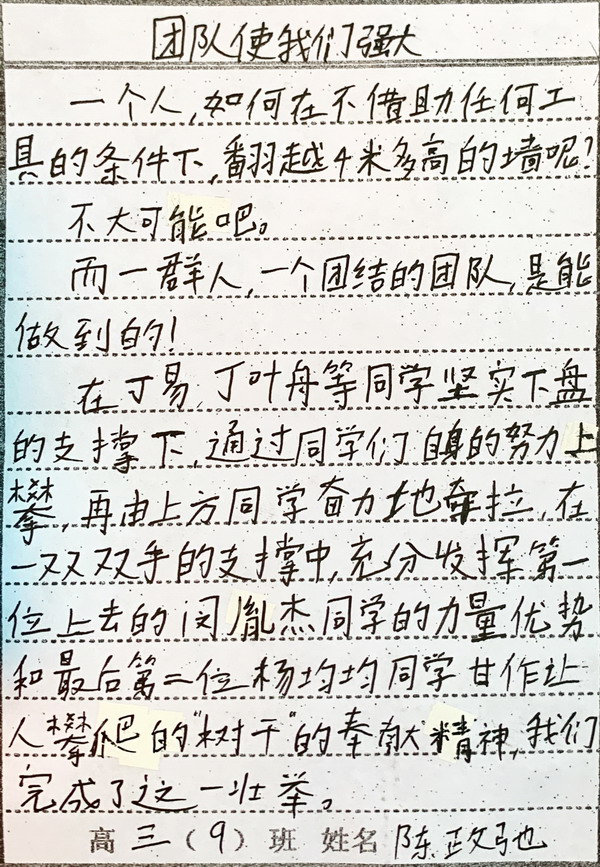 团队使我们强大
一个人,如何在不借助任何工
具的条件下,翻越4米多高的墙呢?
不大可能吧。
而一群人,一个团结的团队,是能
做到的!
在丁易,丁叶舟等同学坚实下盘
的支撑下,通过同学们自身的努力上
攀,再由上方同学奋力地牵拉,在
一双双手的支撑中,充分发挥第一
位上去的闵胤杰同学的力量优势
和最后第二位杨均均同学甘作让
人攀爬的"树干"的奉献精神,我们
完成了这一壮举。
高三(9)班 姓名 陈政驰